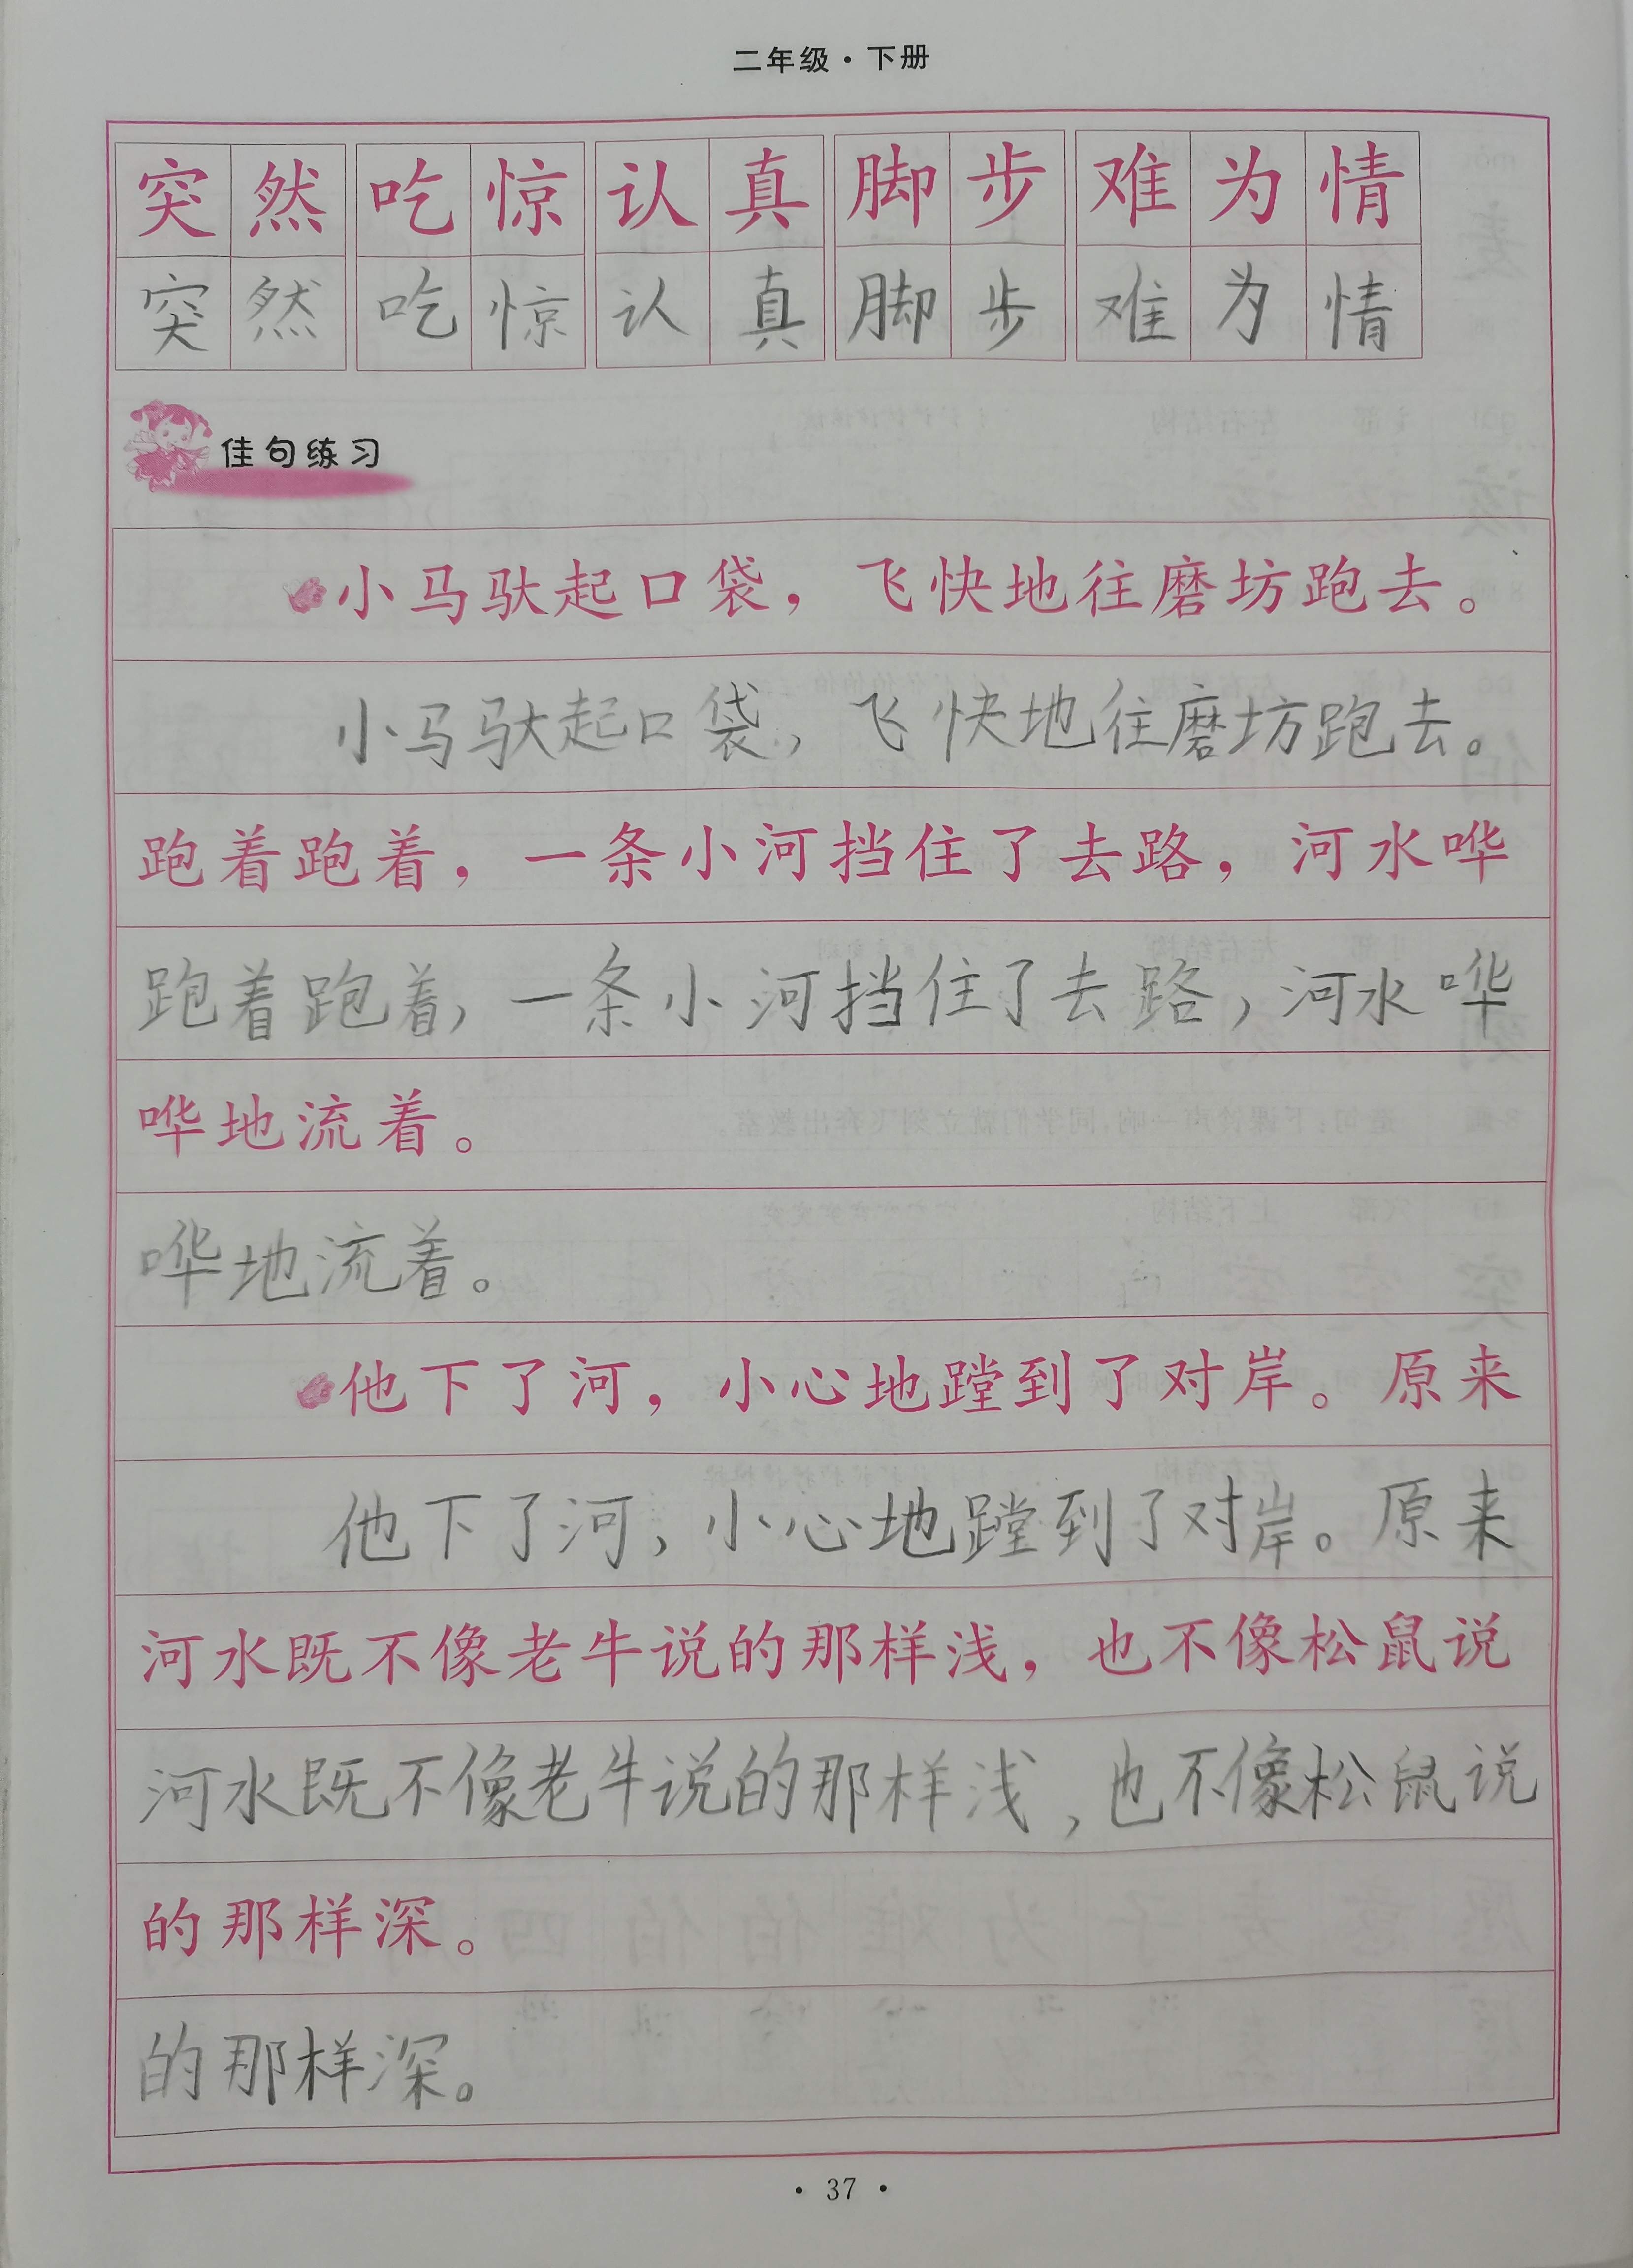 二年级·下册
突然 吃惊 认真 脚步 难为情
突然 吃惊 认真 脚步 难为情
佳句练习
小马驮起口袋，飞快地往磨坊跑去。
小马驮起口袋，飞快地往磨坊跑去。
跑着跑着，一条小河挡住了去路，河水哗
跑着跑着，一条小河挡住了去路，河水哗
哗地流着。
哗地流着。
他下了河，小心地蹚到了对岸。原来
他下了河，小心地蹚到了对岸。原来
河水既不像老牛说的那样浅，也不像松鼠说
河水既不像老牛说的那样浅，也不像松鼠说
的那样深。
的那样深。
·37·